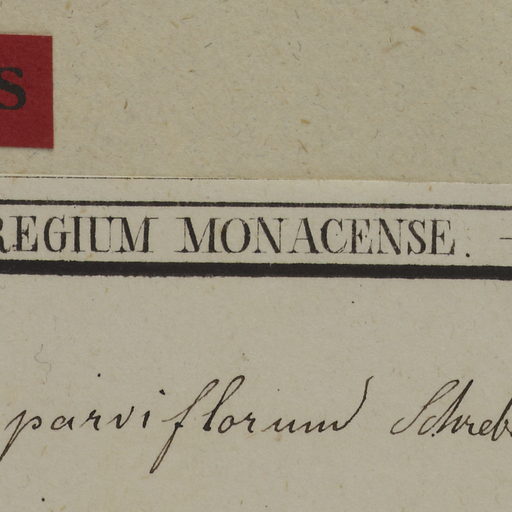 S
REGIUM MONACENSE. –
parviflorum Schreb